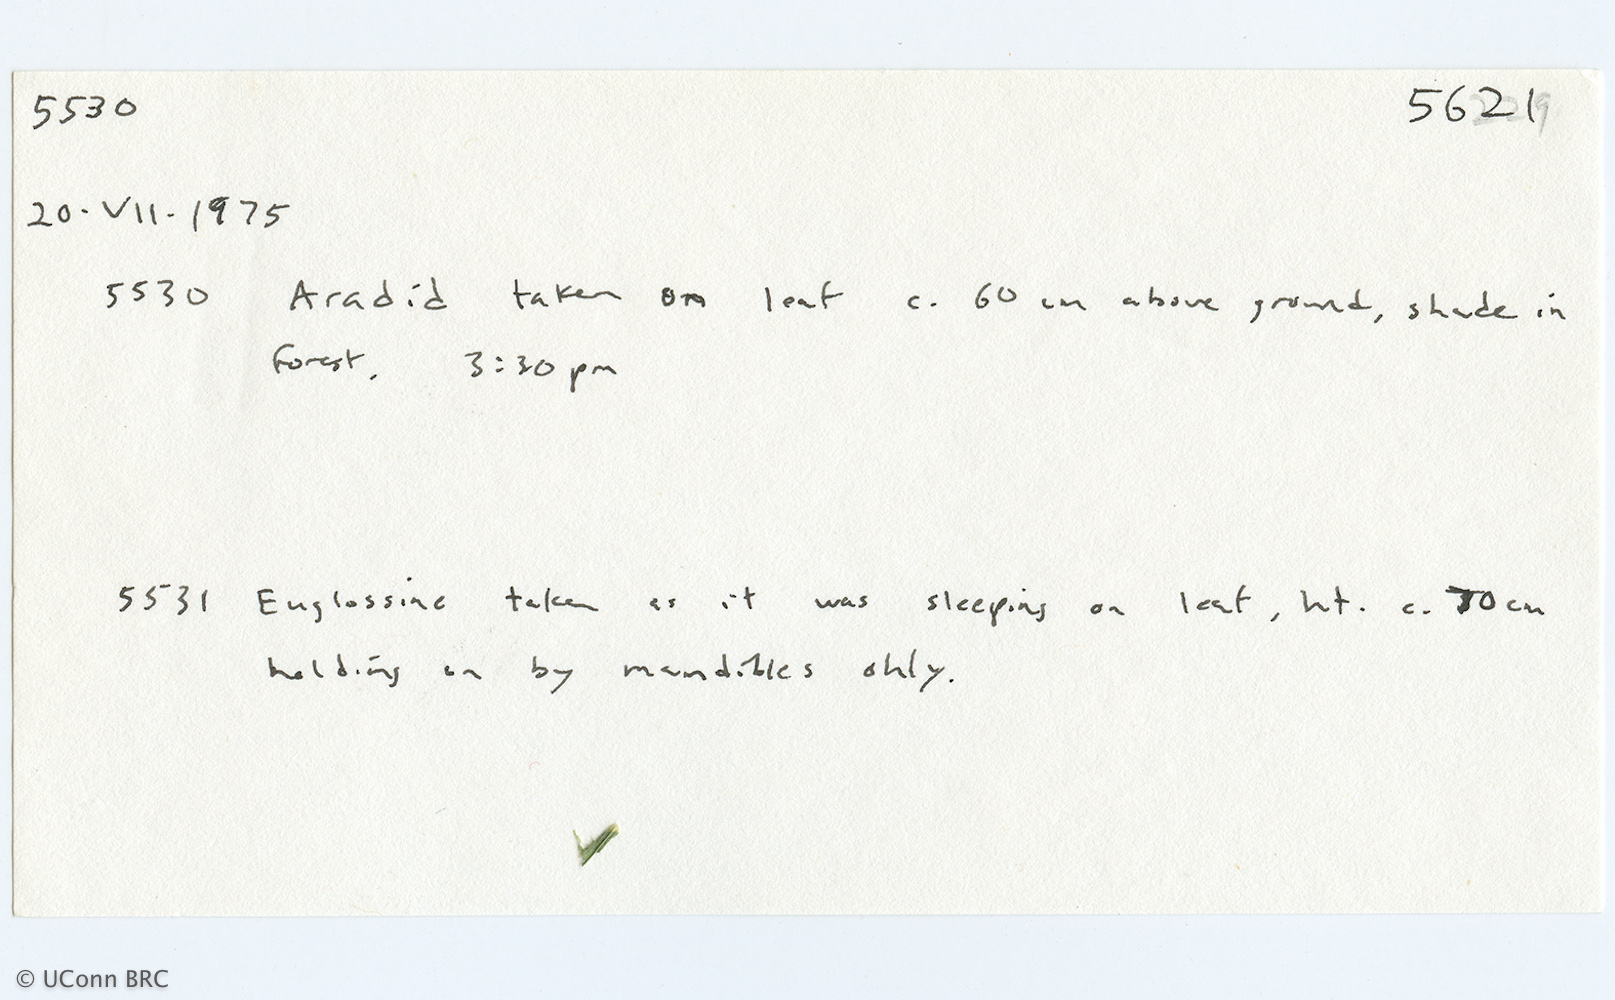 5530 5621
20·VII·1975
5530 Aradid taken on leaf c. 60 cm above ground, shade in
forest. 3:30 pm
5531 Euglossine taken as it was sleeping on leaf, ht. c. 70 cm
holding on by mandibles only.
© UConn BRC